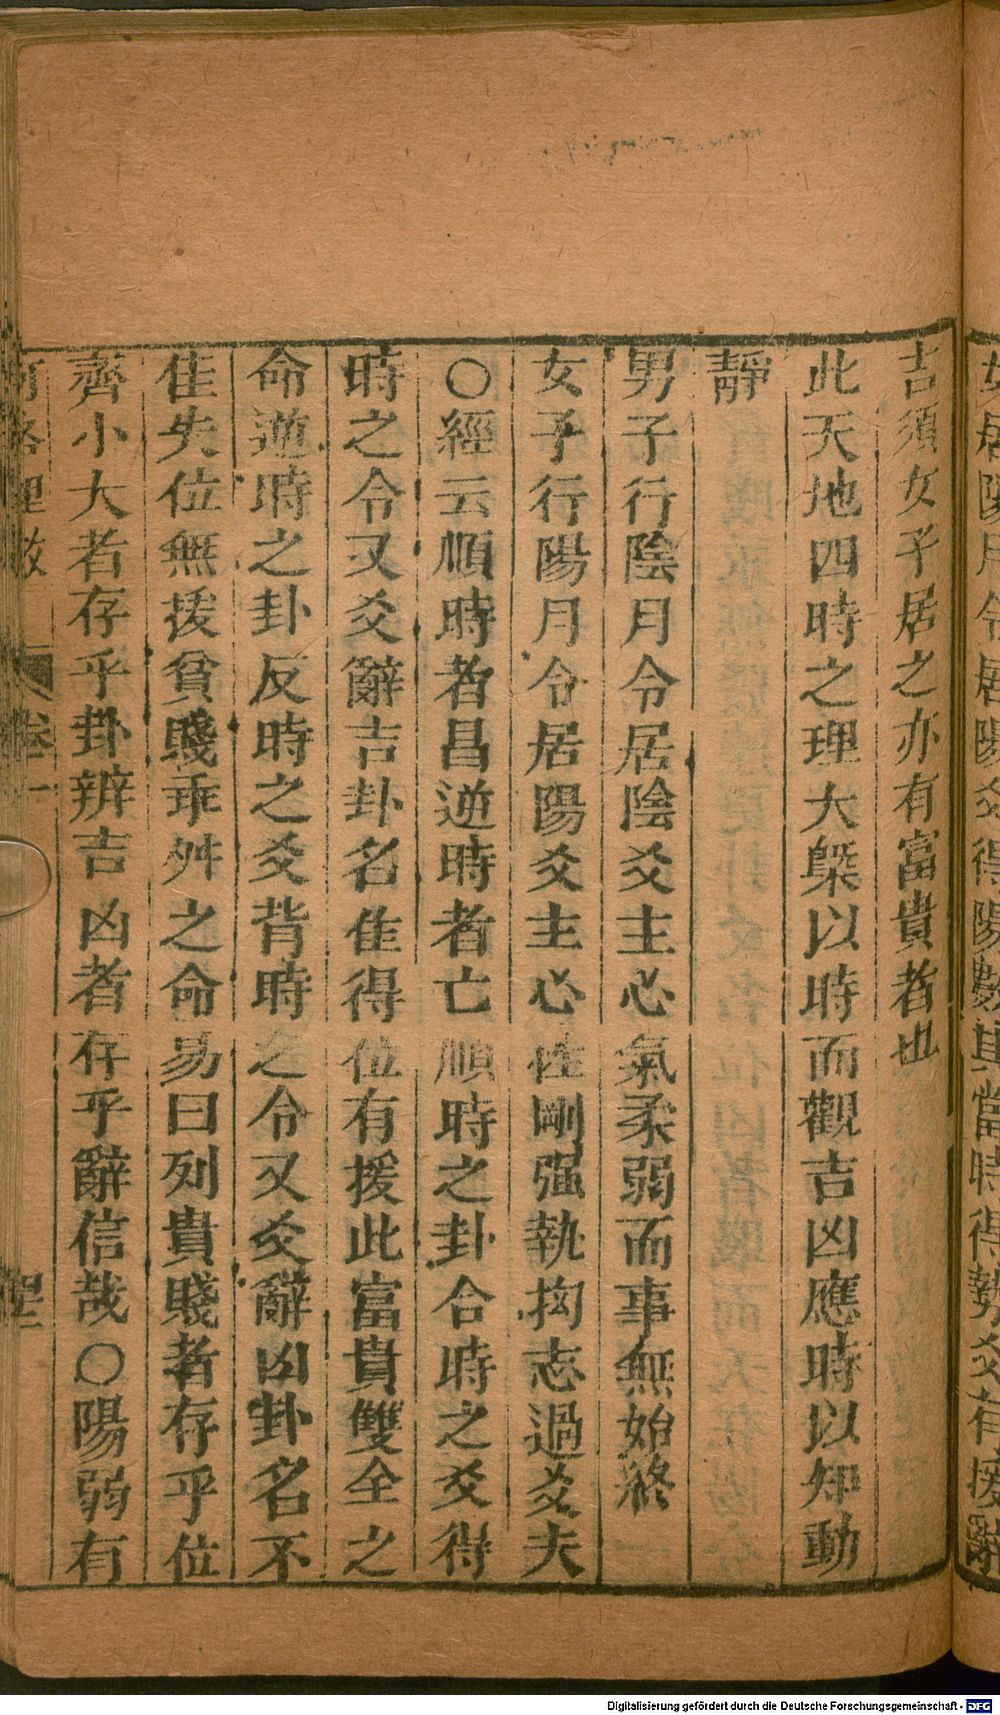 女居陽月令居陽爻得陽數其當時得勢爻有援辭
吉須女子居之亦有富貴者也
此天地四時之理大槩以時而觀吉凶應時以知動
靜
男子行陰月令居陰爻主必氣柔弱而事無始終
女子行陽月令居陽爻主必性剛强執拗志過丈夫
〇經云順時者昌逆時者亡順時之卦合時之爻得
時之令又爻辭吉卦名佳得位有援此富貴雙全之
命逆時之卦反時之爻背時之令又爻辭凶卦名不
佳失位無援貧賤乖舛之命易曰列貴賤者存乎位
齊小大者存乎卦辨吉凶者存乎辭信哉〇陽弱有
河洛理數 卷一
Digitalisierung gefördert durch die Deutsche Forschungsgemeinschaft - DFG